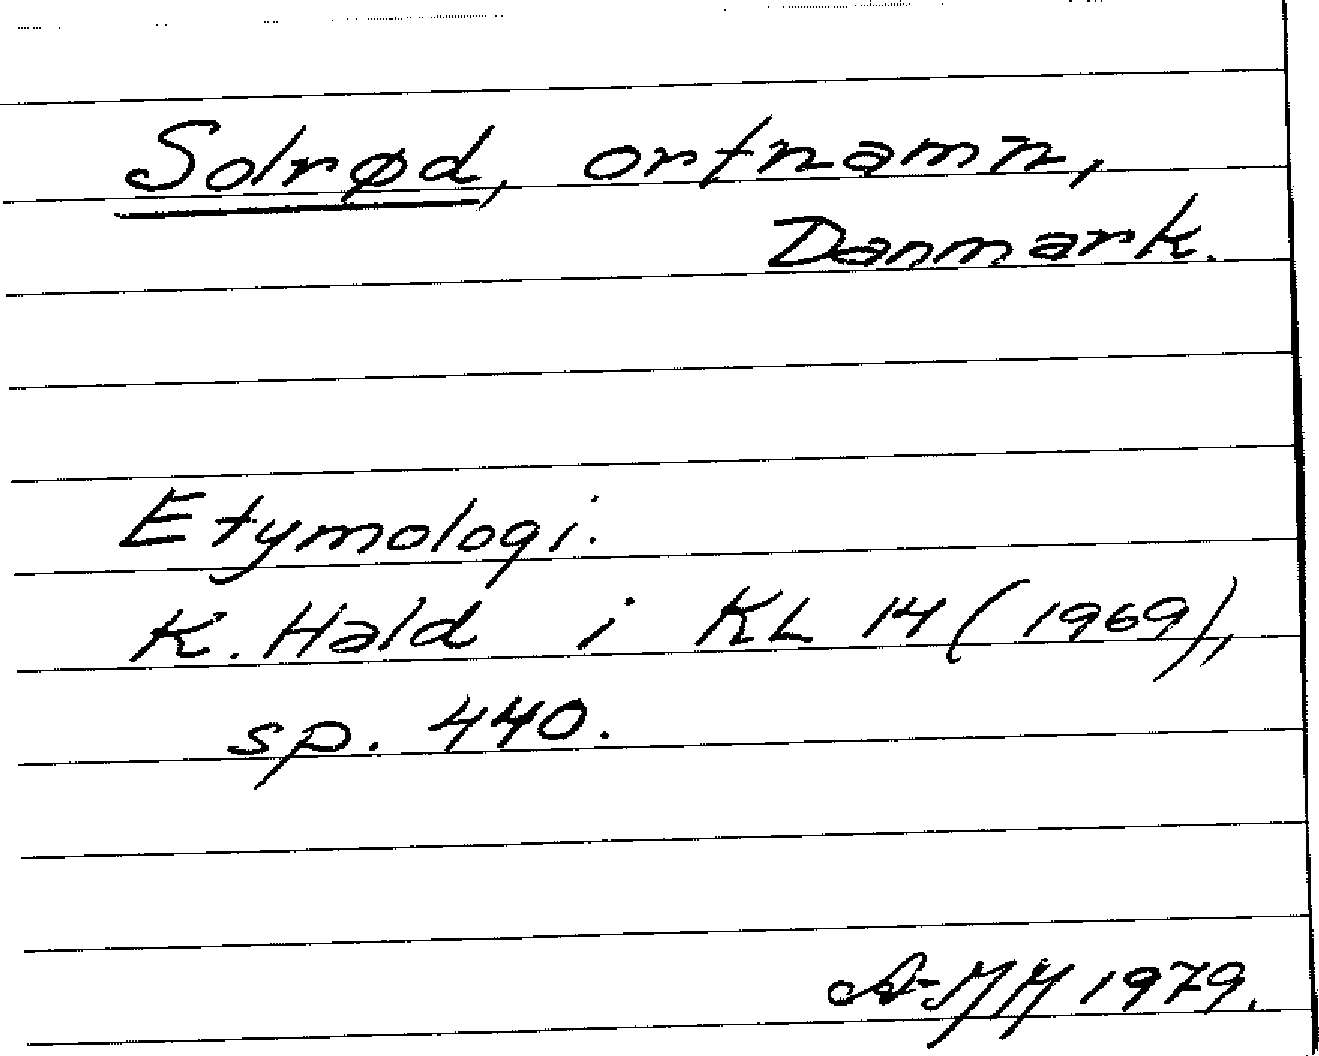 Solrød, ortnamn,
Danmark.
Etymologi.
K. Hald i KL 14 (1969),
sp. 440.
1979.